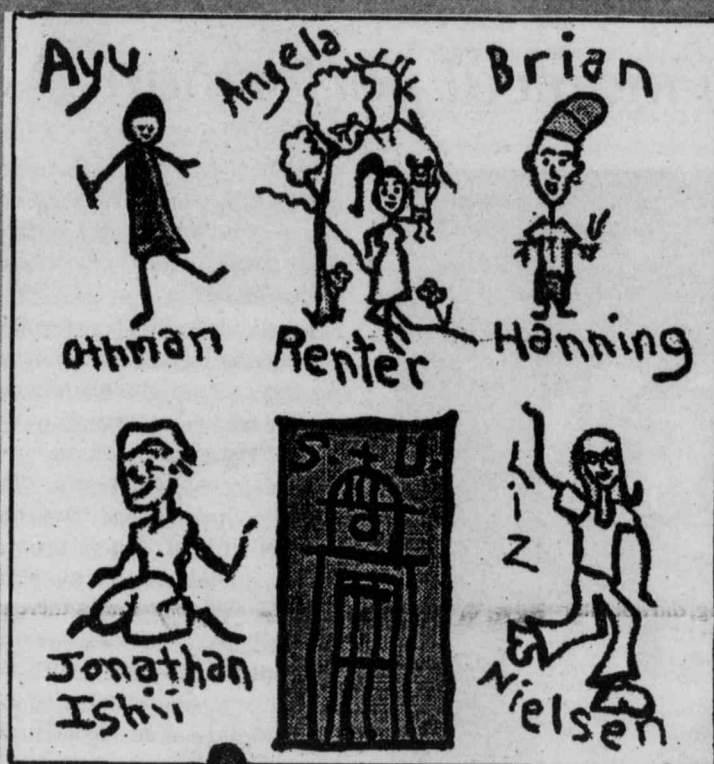 Ayu
Othman
Angela
Renter
Brian
Hanning
Jonathan
Ishii
S. U.
Liz
Nielsen